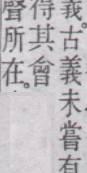 義。古義未嘗有
得其會
聲所在。